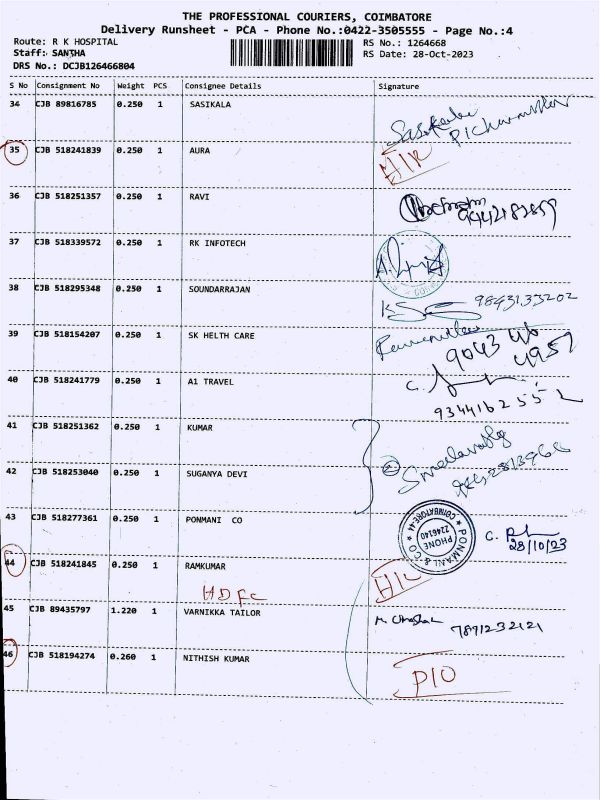 THE PROFESSIONAL COURIERS, COIMBATORE
Delivery Runsheet - PCA - Phone No.:0422-3505555 - Page No.:4
Route: R K HOSPITAL RS No.: 1264668
Staff: SANTHA RS Date: 28-Oct-2023
DRS No.: DCJB126466804
S No Consignment No Weight PCS Consignee Details Signature
34 CJB 89816785 0.250 1 SASIKALA
35 CJB 518241839 0.250 1 AURA
36 CJB 518251357 0.250 1 RAVI
37 CJB 518339572 0.250 1 RK INFOTECH
38 CJB 518295348 0.250 1 SOUNDARRAJAN 9843133202
39 CJB 518154207 0.250 1 SK HELTH CARE
40 CJB 518241779 0.250 1 A1 TRAVEL
9344162552
41 CJB 518251362 0.250 1 KUMAR
42 CJB 518253040 0.250 1 SUGANYA DEVI
43 CJB 518277361 0.250 1 PONMANI CO
PONMANI & CO COIMBATORE-44 PHONE 2246140
28/10/23
44 CJB 518241845 0.250 1 RAMKUMAR
HDFC
45 CJB 89435797 1.220 1 VARNIKKA TAILOR 7891232121
46 CJB 518194274 0.260 1 NITHISH KUMAR
PIO